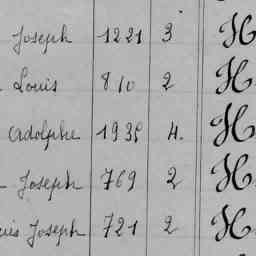 Joseph 1221 3 H
Louis 810 2 H.
Adolphe 1935 4. H
Joseph 769 2 H.
Joseph 721 2 H